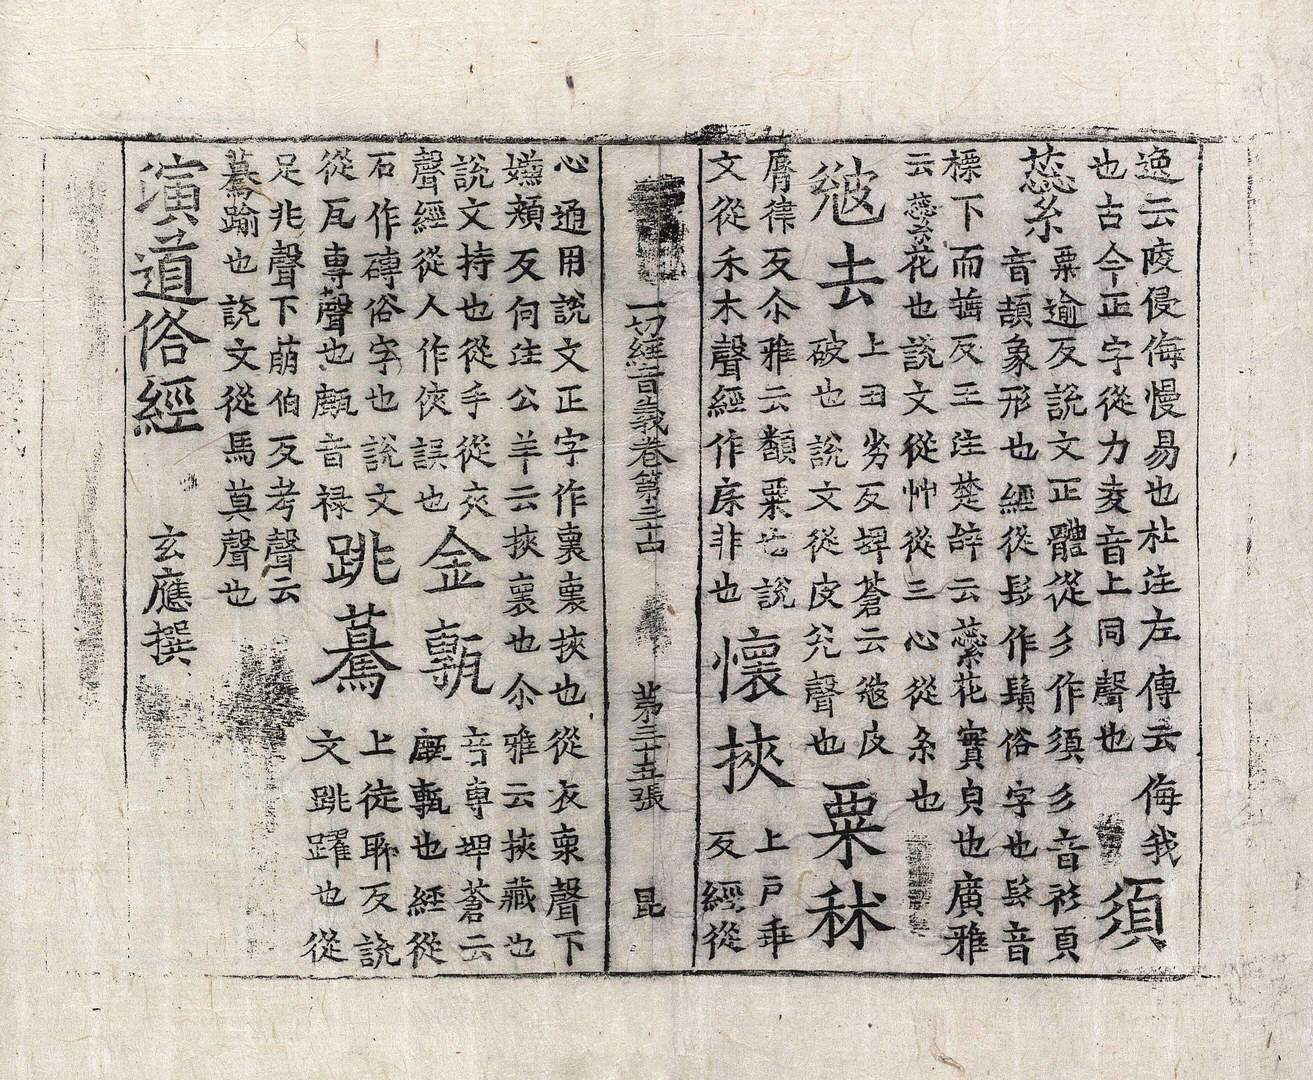 逸云㥄侵侮慢易也杜注左傳云侮我
也古今正字從力夌音上同聲也
須
蘂
粟逾反說文正體從彡作須彡音衫頁
音頡象形也經從髟作鬚俗字也髟音
標下而捶反王注楚辭云蘂花實貞也廣雅
云蘂花也說文從艸從三心從糸也
㿱去
上丑劣反埤蒼云㿱皮
破也說文從皮兊聲也
粟秫
脣律反尒雅云粟也說
文從禾朮聲經作床非也
懷挾
上戶乖
反經從
一切經音義卷第三十 第三十五張 昆
心通用說文正字作褱褱挾也從衣眔聲下
嬿頰反何注公羊云挾褱也尒雅云挾藏也
說文持也從手從夾
聲經從人作俠誤也
金甎
音專埤蒼云
㼾甎也經從
石作磚俗字也說文
從瓦專聲也㼾音祿
跳驀
上徒聊反說
文跳躍也從
足兆聲下萠伯反考聲云
驀踰也說文從馬莫聲也
演道俗經 玄應撰